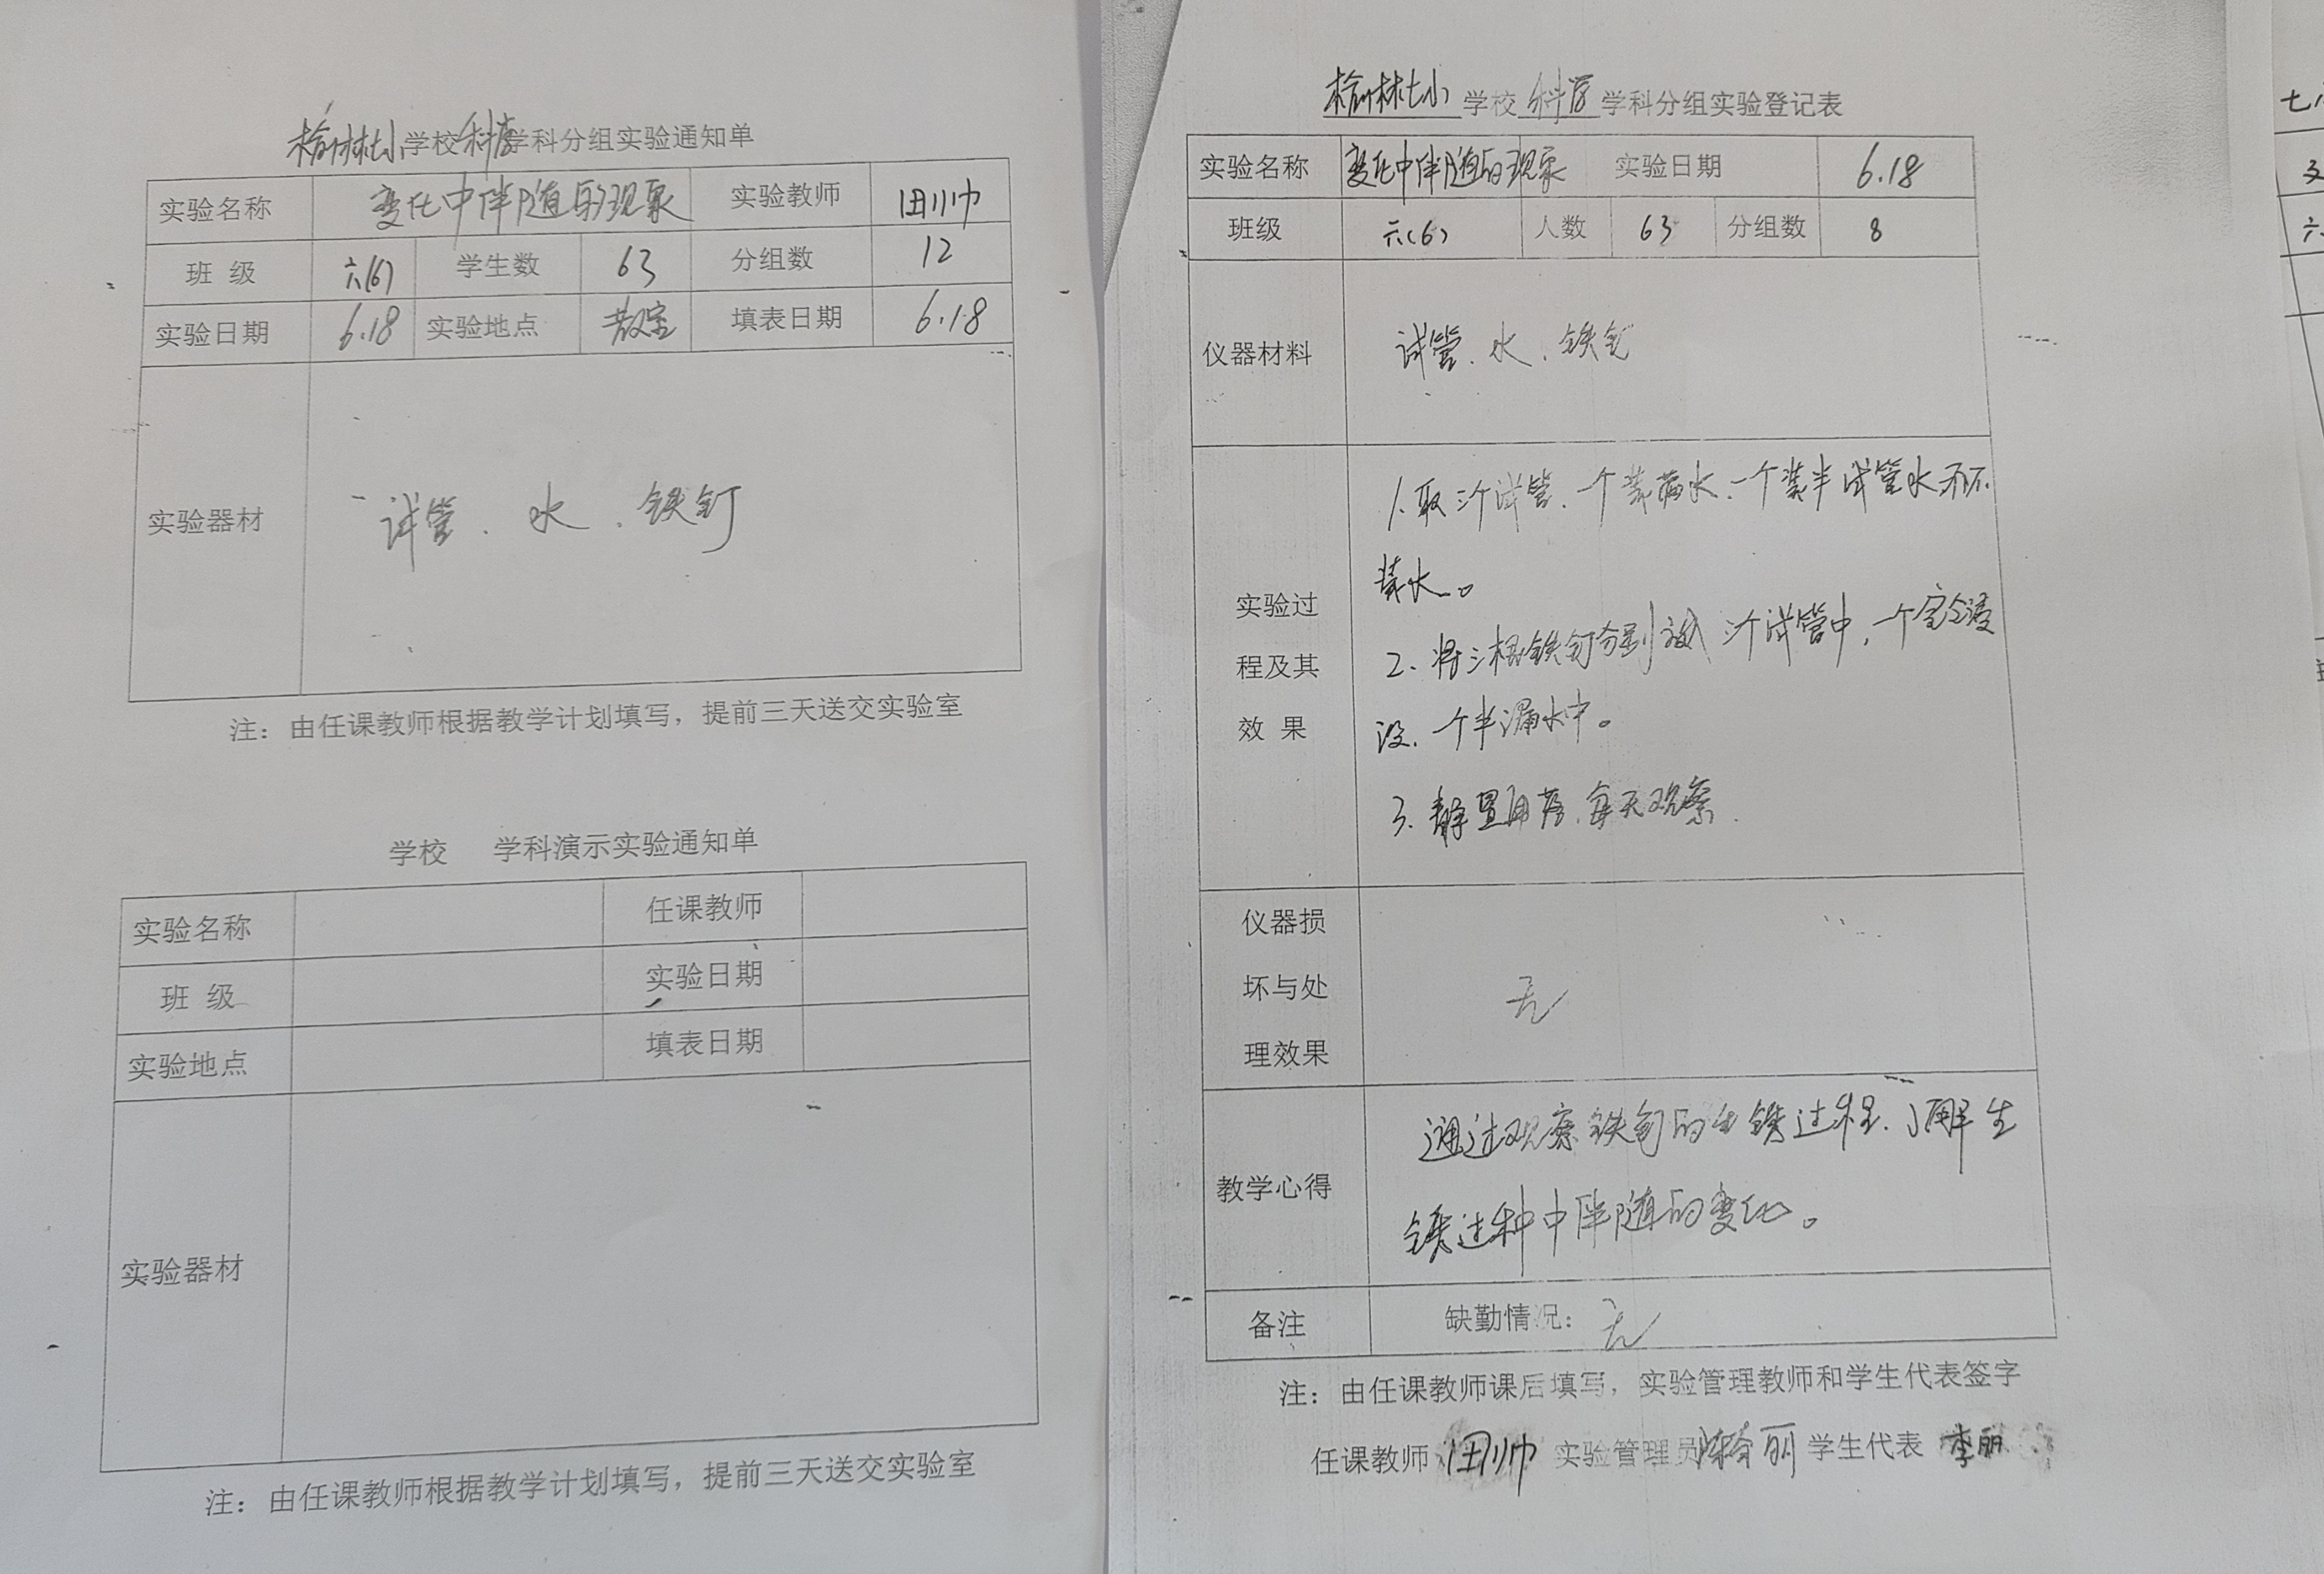 榆林七小学校科学学科分组实验通知单
实验名称 变化中伴随的现象 实验教师 田川巾
班 级 六(6) 学生数 63 分组数 12
实验日期 6.18 实验地点 教室 填表日期 6.18
实验器材 试管、水、铁钉
注：由任课教师根据教学计划填写，提前三天送交实验室
学校 学科演示实验通知单
实验名称 任课教师
班 级 实验日期
实验地点 填表日期
实验器材
注：由任课教师根据教学计划填写，提前三天送交实验室
榆林七小 学校 科学 学科分组实验登记表
实验名称 变化中伴随的现象 实验日期 6.18
班级 六(6) 人数 63 分组数 8
仪器材料 试管、水、铁钉
1.取三个试管、一个装满水、一个装半试管水 不
装水。
实验过
2.将三根铁钉分别放入三个试管中，一个完全浸
程及其
没、一个半漏水中。
效 果
3.静置 每天观察.
仪器损
坏与处
无
理效果
通过观察铁钉的生锈过程、了解生
教学心得
锈过种中伴随的变化。
备注 缺勤情况：无
注：由任课教师课后填写，实验管理教师和学生代表签字
任课教师 田川巾 实验管理员 丽 学生代表 李丽